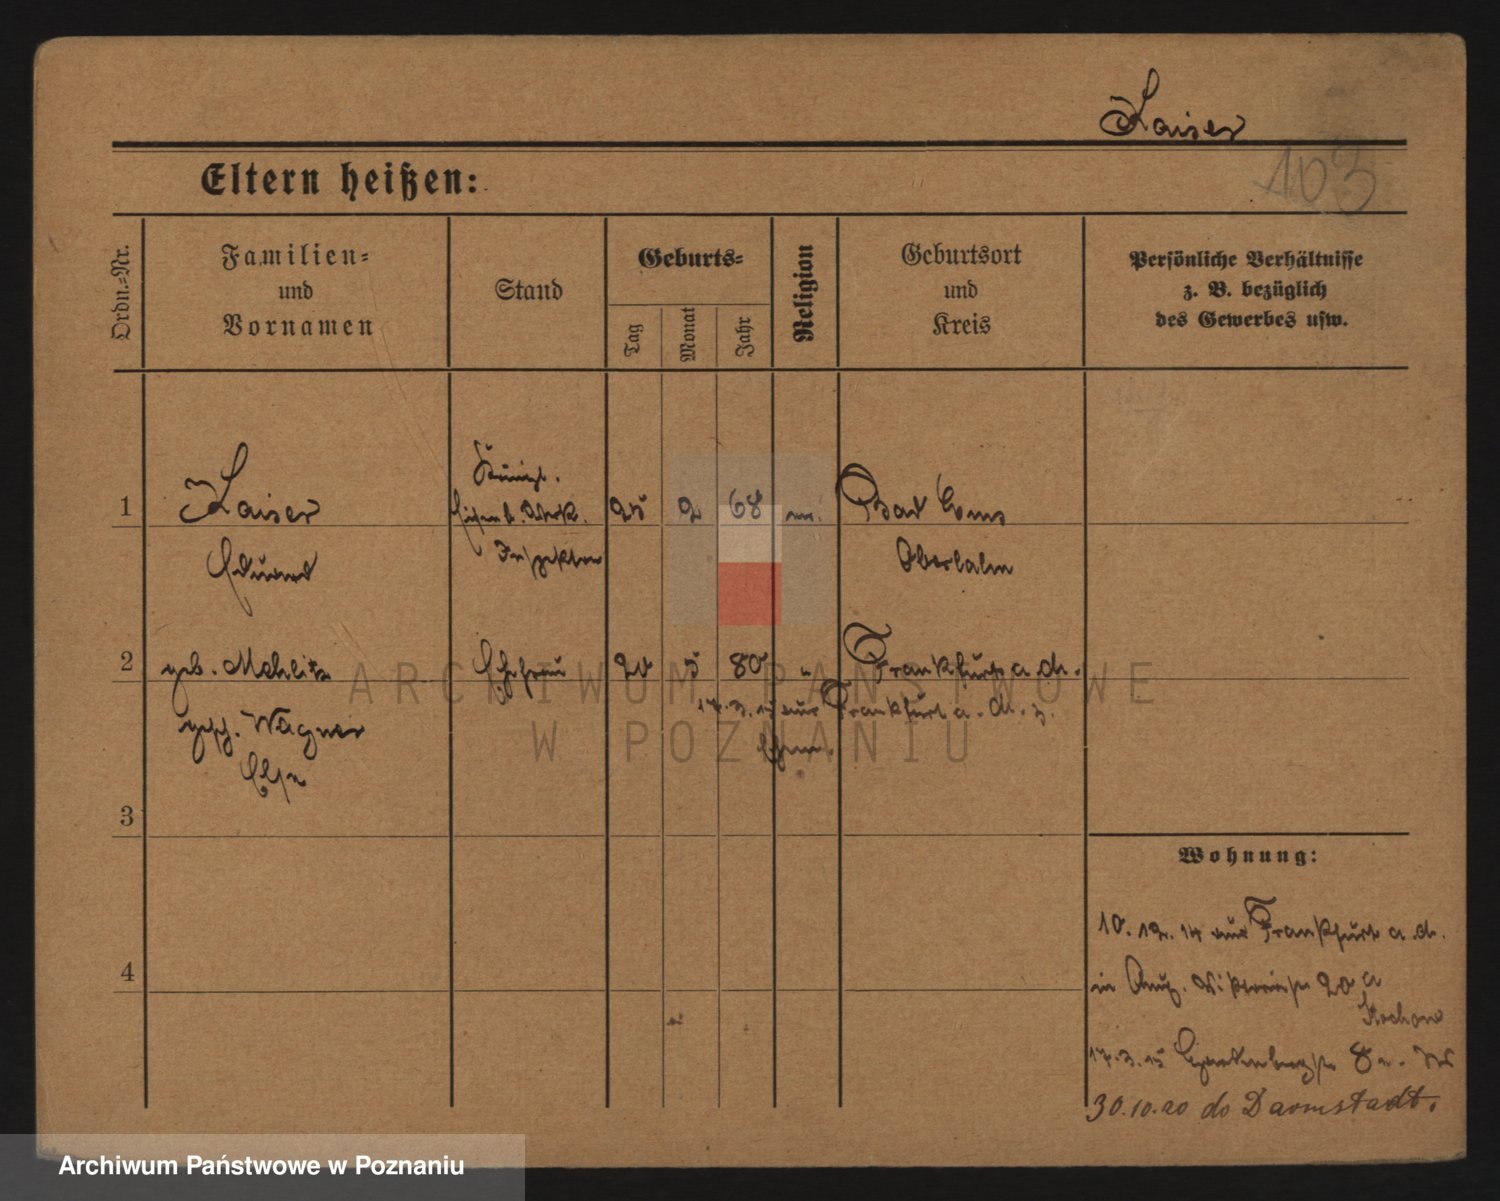 Kaiser
103
Eltern heißen:
Ordn.-Nr.
Familien-
und
Vornamen
Stand
Geburts-
Tag
Monat
Jahr
Religion
Geburtsort
und
Kreis
Persönliche Verhältnisse
z. B. bezüglich
des Gewerbes usw.
Königl.
1 Kaiser Eisenb. Werk. 25 2 68 ev. Bad Ems
Inspektor
Eduard Oberlahn
2 geb. Mehlitz Ehefrau 20 5 80 " Frankfurt a. M.
17.3.15 aus Frankfurt a. M. z.
gesch. Wagner
Ehem.
Else
3
4
Wohnung:
10.12.14 aus Frankfurt a. M.
in Aug. Viktoriastr 20 a
Kochan
17.3.15 8
30.10.20 do Darmstadt.
ARCHIWUM PAŃSTWOWE
W POZNANIU
Archiwum Państwowe w Poznaniu